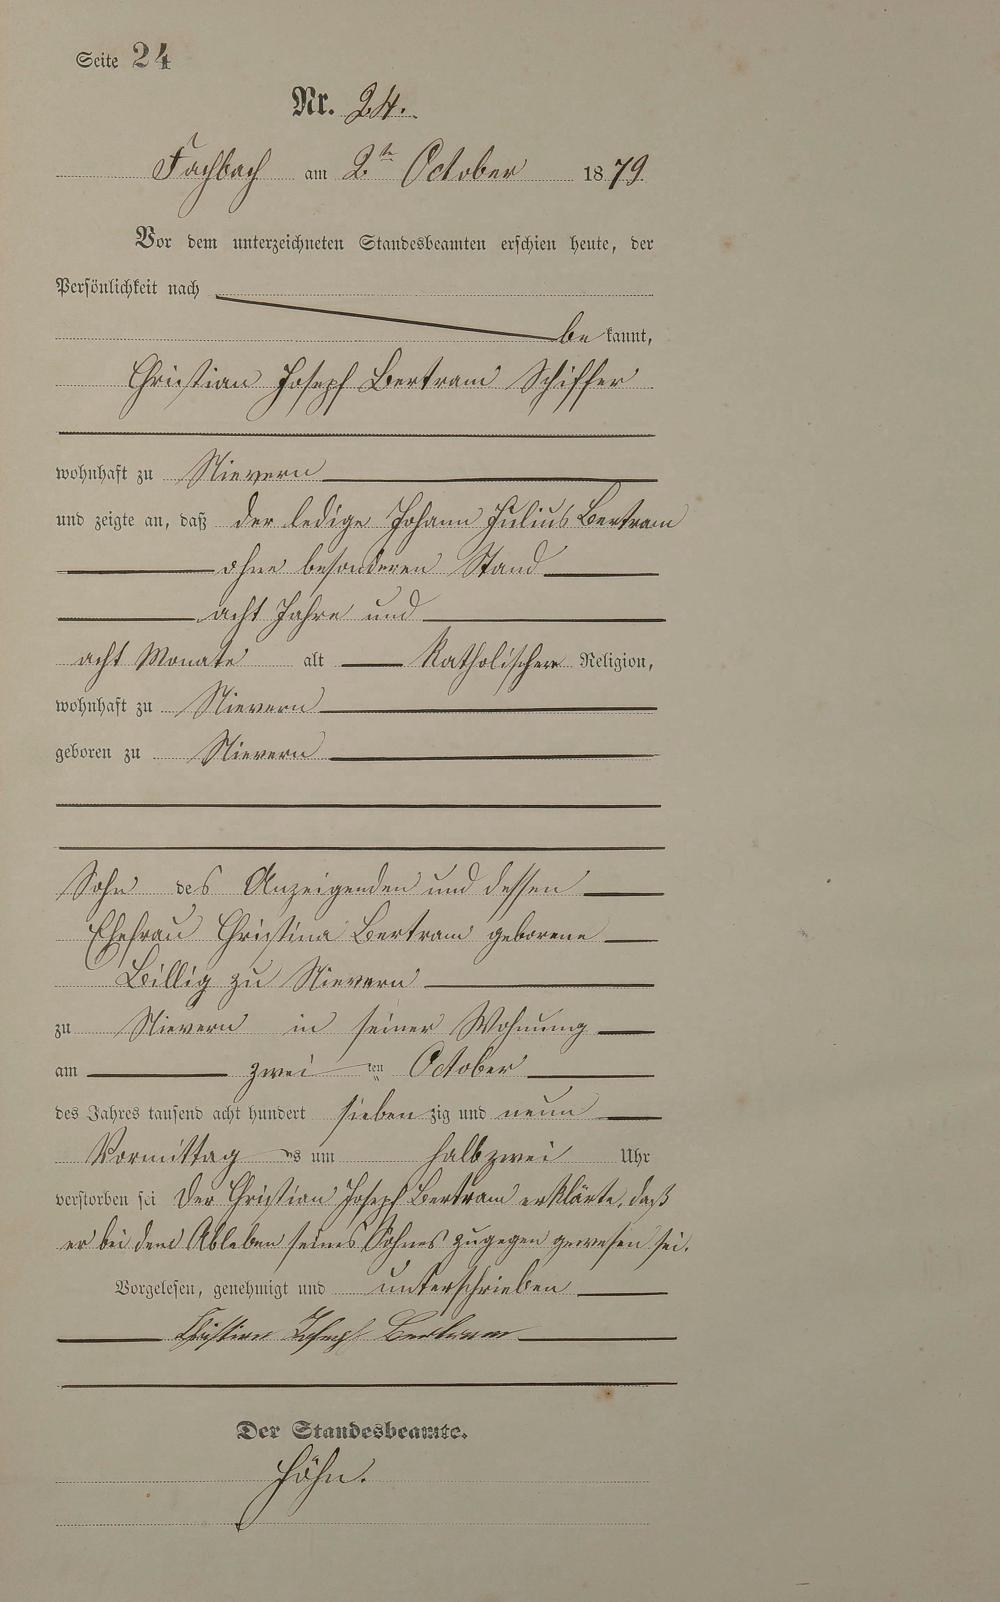 Seite 24
Nr. 24.
Fachbach am 2ten October 1879
Vor dem unterzeichneten Standesbeamten erschien heute, der
Persönlichkeit nach
bekannt,
Christian Joseph Bertram Schiffer
wohnhaft zu Nievern
und zeigte an, daß der ledige Johann Julius Bertram
ohne besonderen Stand
acht Jahre und
acht Monate alt Katholischer Religion,
wohnhaft zu Nievern
geboren zu Nievern
Sohn des Anzeigenden und dessen
Ehefrau Christina Bertram geborene
Billig zu Nievern
zu Nievern in seiner Wohnung
am zwei ten October
des Jahres tausend acht hundert siebenzig und neun
Vormittags um halb zwei Uhr
verstorben sei Der Christian Joseph Bertram erklärte, daß
er bei dem Ableben seines Sohnes zugegen gewesen sei.
Vorgelesen, genehmigt und unterschrieben
Christian Joseph Bertram
Der Standesbeamte.
Höhn.